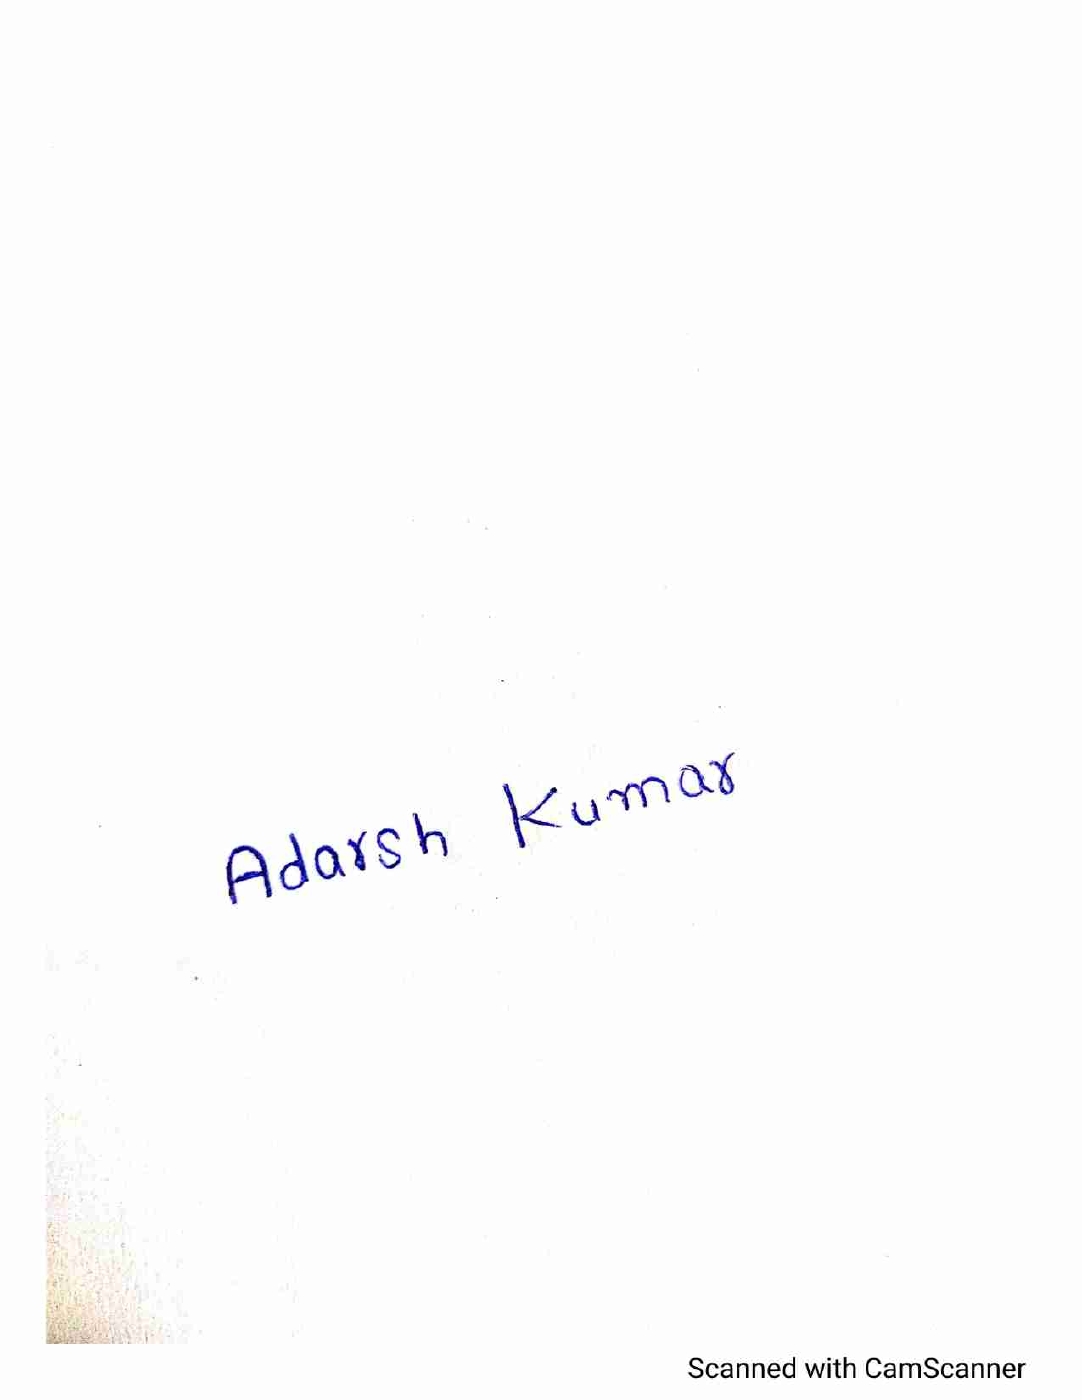 Adarsh Kumar
Scanned with CamScanner